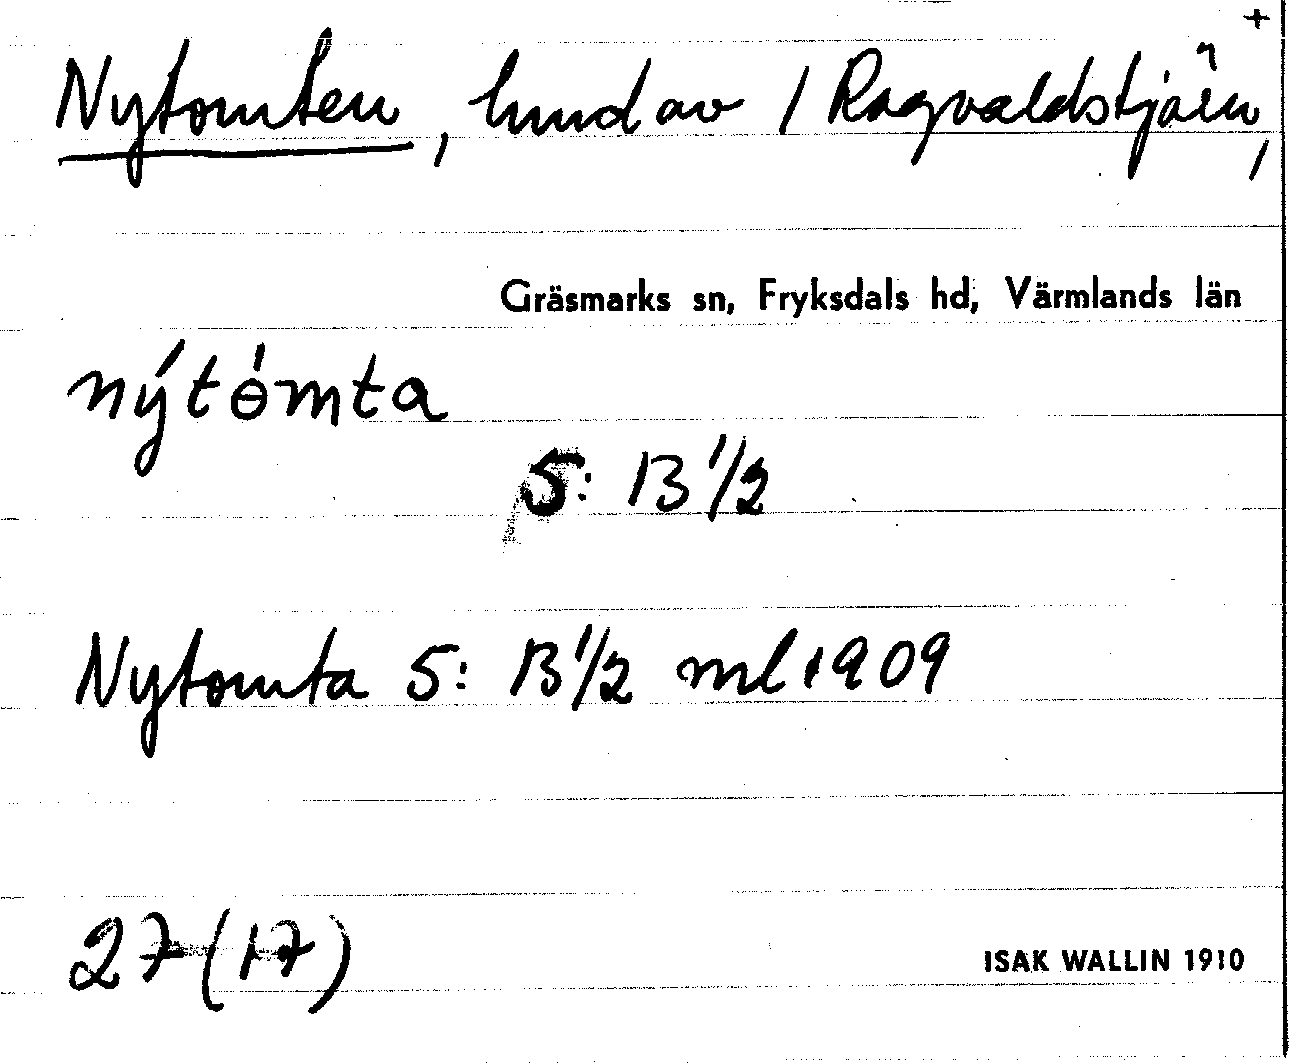 +
Nytomten, hmd av 1 Ragvaldstjärn,
Gräsmarks sn, Fryksdals hd, Värmlands län
nýtɵ́mta
5: 13 1/2
Nytomta 5: 13 1/2 ml 1909
27 (17)
ISAK WALLIN 1910